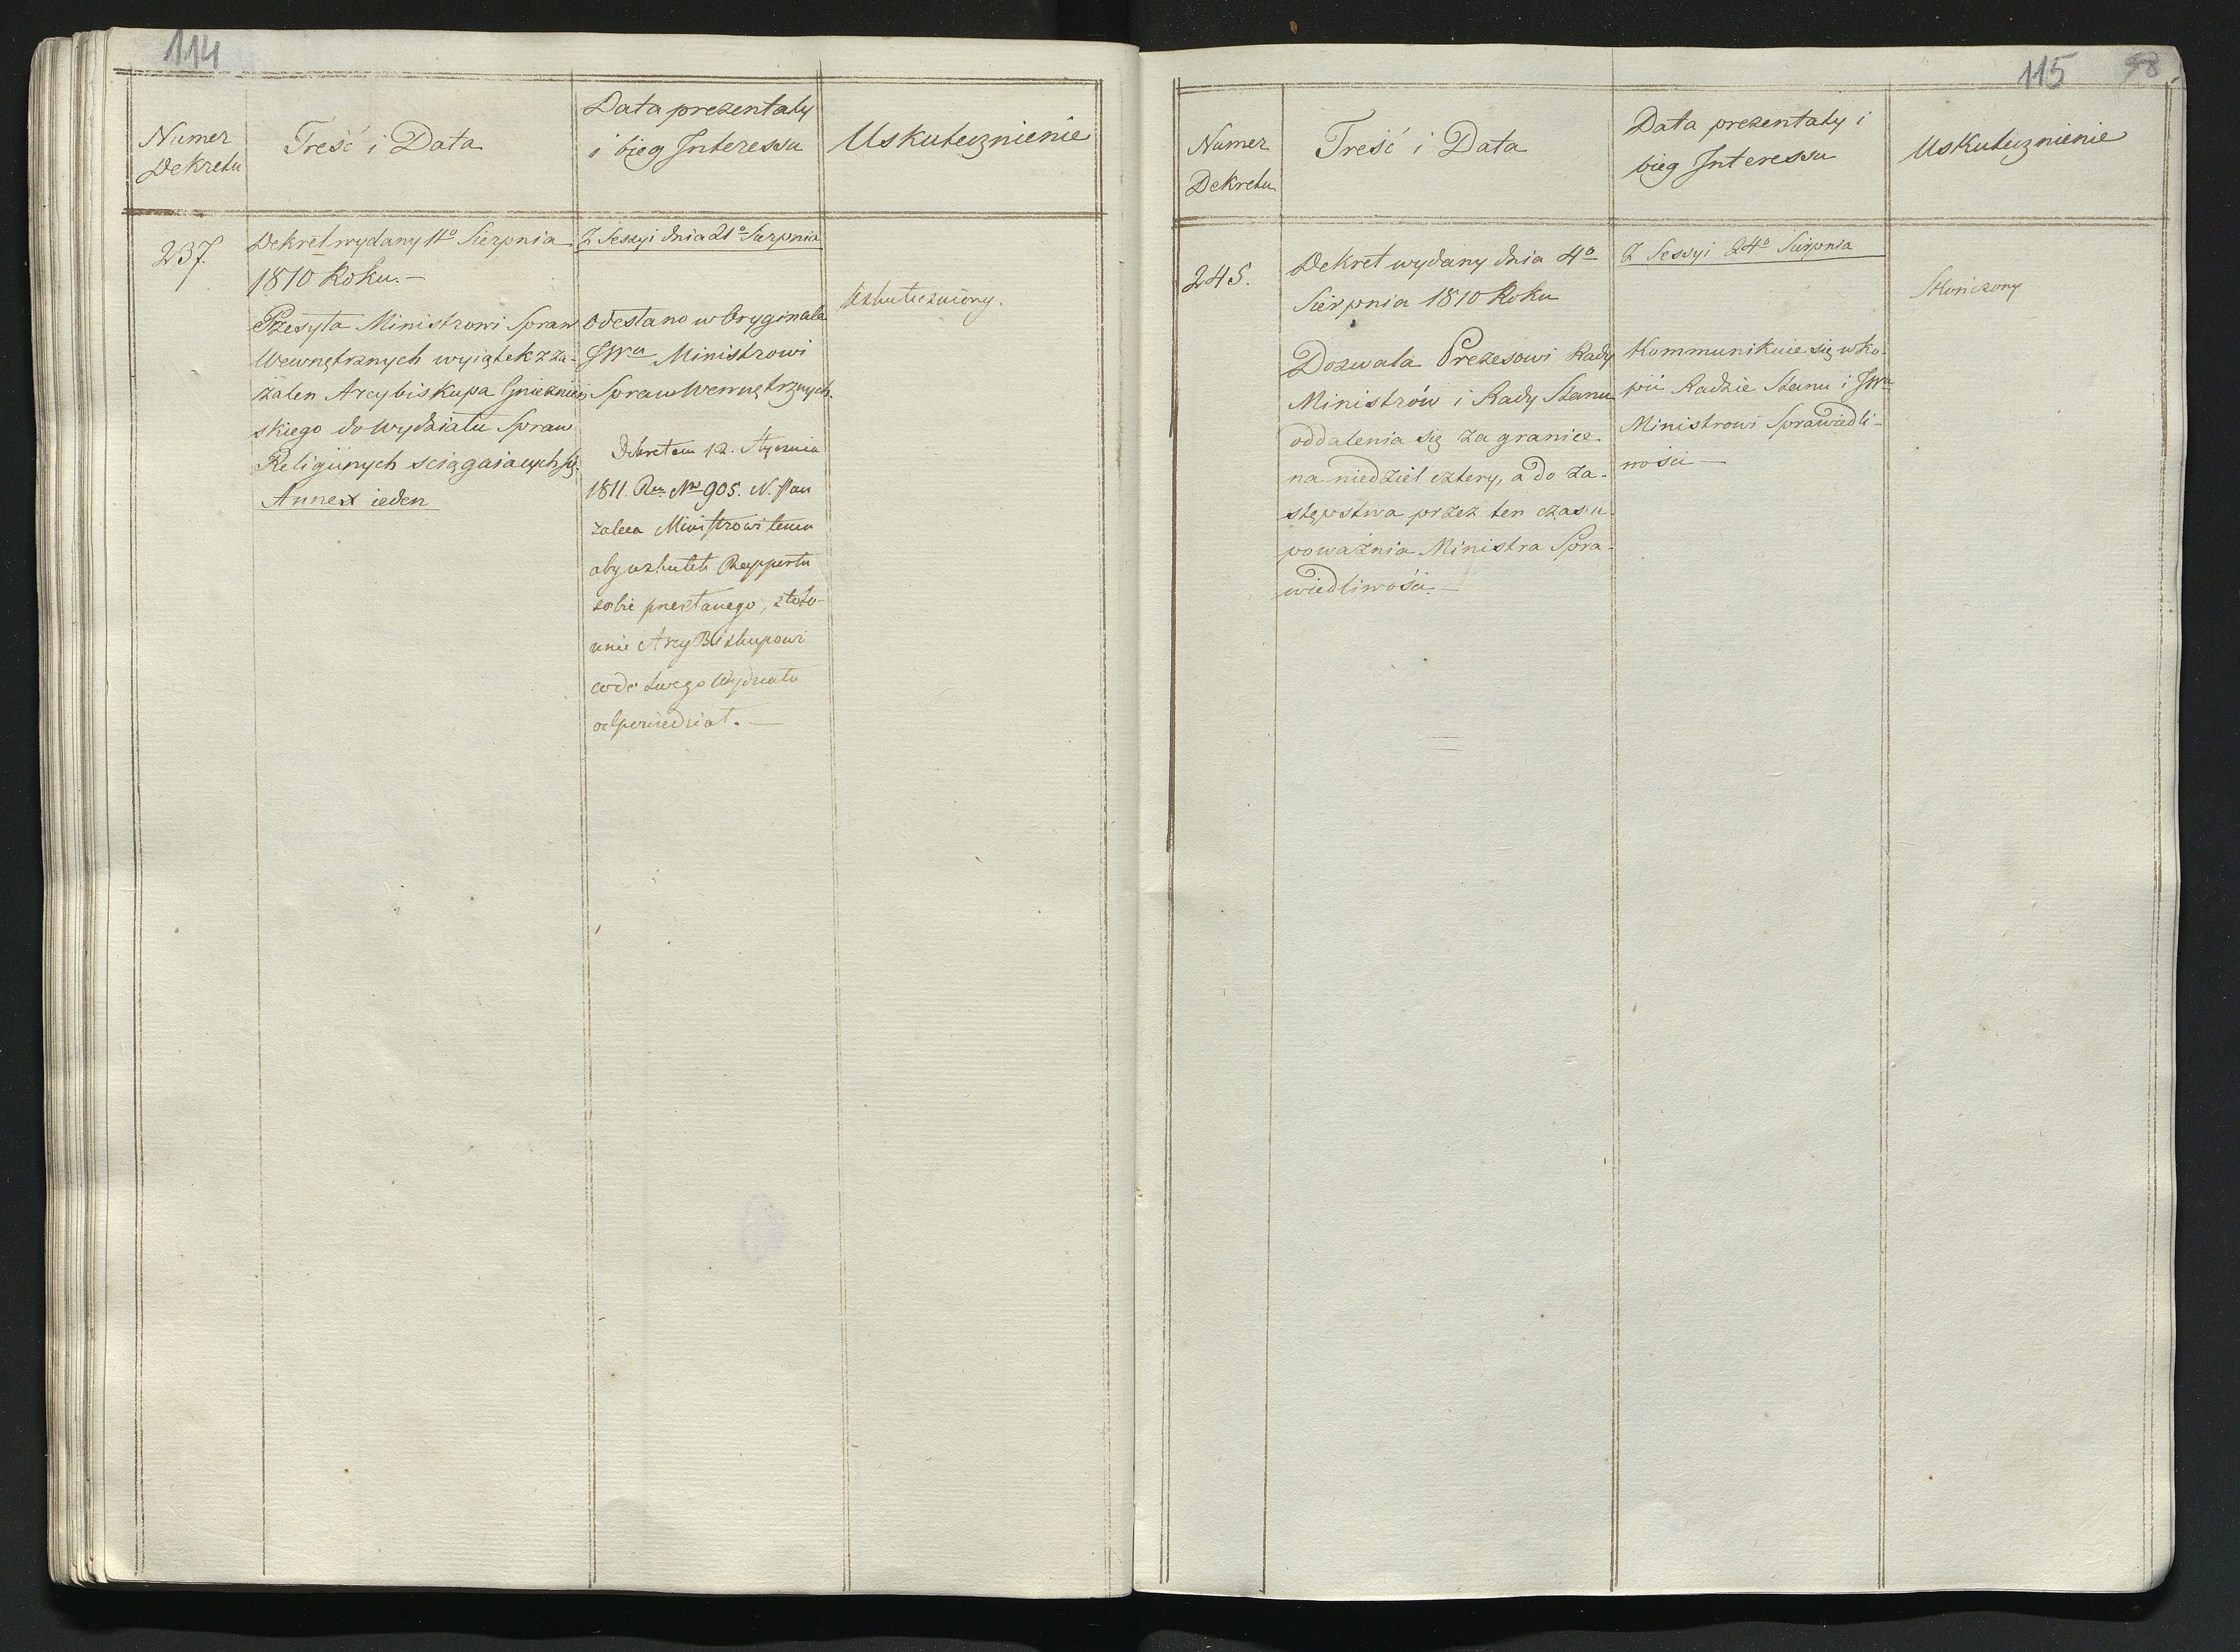 114
Numer
Dekretu
Treść i Data
Data prezentaty
i bieg Interessu
Uskutecznienie
237.
Dekret wydany 11º Sierpnia
1810 Roku. —
Przesyła Ministrowi Spraw
Wewnętrznych wyiątek z za-
żaleń Arcybiskupa Gnieźnień
skiego do Wydziału Spraw
Religiinych sciągaiących się.
Annex ieden
Z Sessyi dnia 21º Sierpnia
Odesłano w Oryginale
JWu Ministrowi
Spraw Wewnętrznych.
Dekretem 12. Stycznia
1811. Ru. No 905. N. Pan
zaleca Ministrowi temu
aby w skutek Rapportu
sobie przesłanego,
Arcy Biskupowi
co do swego Wydziału
odpowiedział. —
Uskuteczniony.
115
58
Numer
Dekretu
Treść i Data
Data prezentaty i
bieg Interessu
Uskutecznienie
245.
Dekret wydany dnia 4º
Sierpnia 1810 Roku
Dozwala Prezesowi Rady
Ministrów i Rady Stanu
oddalenia się za granice
na niedziel cztery, a do za-
stępstwa przez ten czas u-
poważnia Ministra Spra-
wiedliwości. —
Z Sessyi 24º Sierpnia
Kommunikuie się w ko-
pii Radzie Stanu i JWu
Ministrowi Sprawiedli-
wości —
Skończony